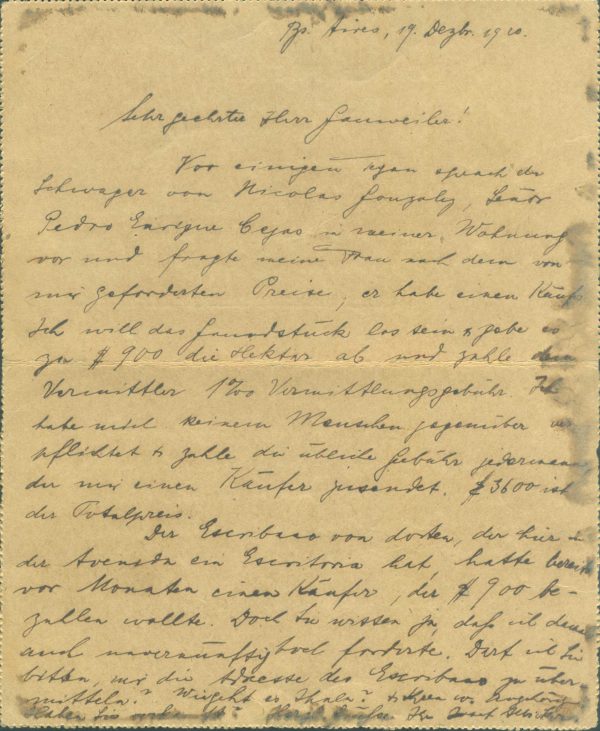 Bs. Aires, 19. Dezbr. 1920.
Sehr geehrter Herr Gamweiler!
Vor einigen sprach der
Schwager von Nicolas Gonzalez, Señor
Pedro Enrique Cejas in meiner Wohnung
vor und fragte meine Frau nach dem von
mir geforderten Preise, er habe einen Käufer
Ich will das Grundstück los sein & gebe es
zu $ 900 die Hektar ab und zahle dem
Vermittler 1% Vermittlungsgebühr. Ich
habe mich keinem Menschen gegenüber ver
pflichtet & zahle die übliche Gebühr jedermann
der mir einen Käufer zusendet. $ 3600 ist
der Totalpreis.
Der Escribano von dorten, der hier in
der Avenida ein Escritorio hat, hatte bereits
vor Monaten einen Käufer, der $ 900 be-
zahlen wollte. Doch Sie wissen ja, daß ich damals
auch unvernünftig hoch forderte. Darf ich Sie
bitten, mir die Adresse des Escribano zu über
mitteln? Wie geht es Ihnen? &
Haben Sie Herzl. Grüße Ihr